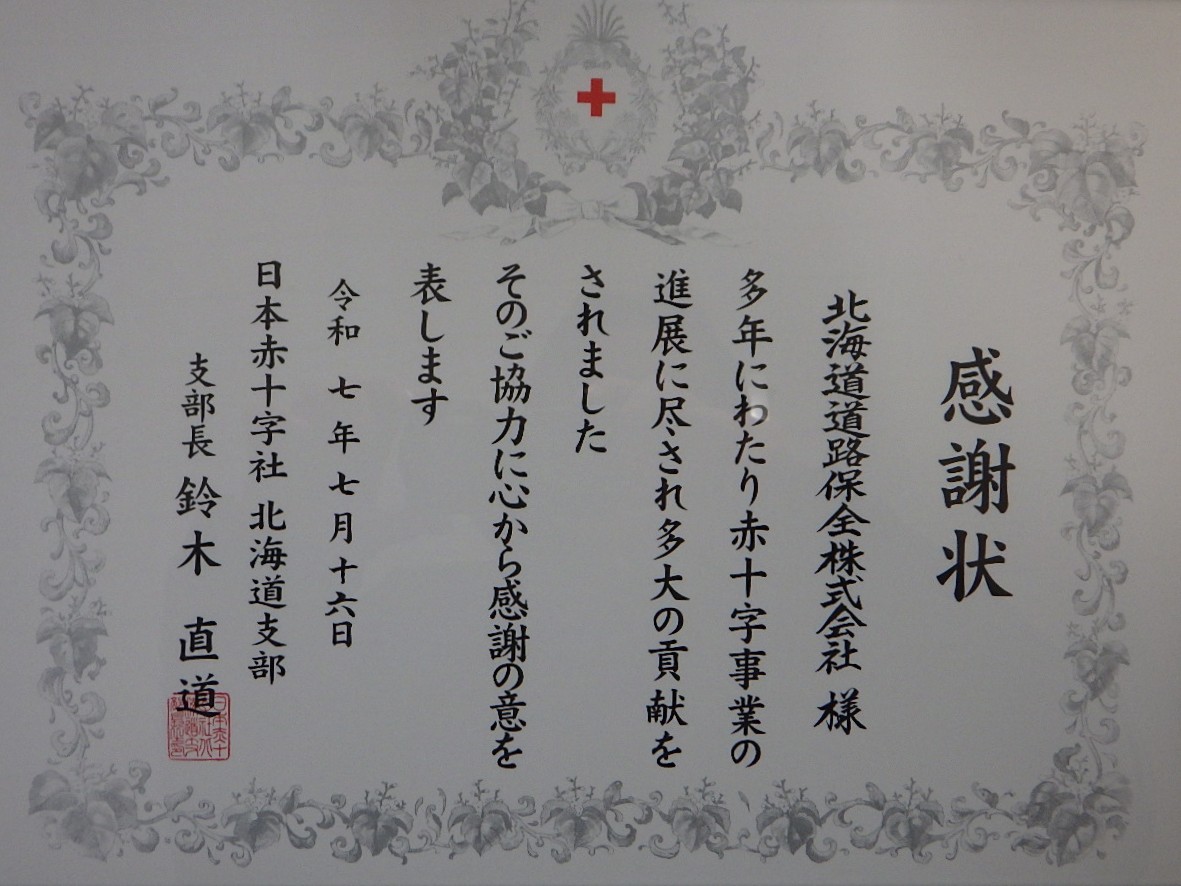 感謝状
北海道道路保全株式会社 様
多年にわたり赤十字事業の
進展に尽され多大の貢献を
されました
そのご協力に心から感謝の意を
表します
令和 七年七月十六日
日本赤十字社 北海道支部
支部長 鈴木 直道